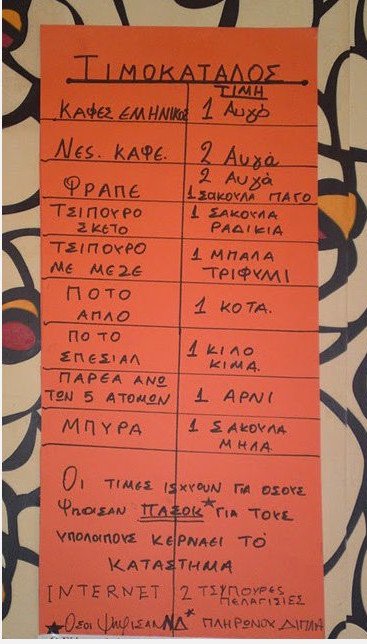 ΤΙΜΟΚΑΤΑΛΟΣ
ΤΙΜΗ
ΚΑΦΕΣ ΕΛΛΗΝΙΚΟΣ 1 Αυγό
ΝΕS. ΚΑΦΕ. 2 Αυγά
ΦΡΑΠΕ 2 Αυγά
1 ΣΑΚΟΥΛΑ ΠΑΓΟ
ΤΣΙΠΟΥΡΟ ΣΚΕΤΟ 1 ΣΑΚΟΥΛΑ ΡΑΔΙΚΙΑ
ΤΣΙΠΟΥΡΟ ΜΕ ΜΕΖΕ 1 ΜΠΑΛΑ ΤΡΙΦΥΛΛΙ
ΠΟΤΟ ΑΠΛΟ 1 ΚΟΤΑ.
ΠΟΤΟ ΣΠΕΣΙΑΛ 1 ΚΙΛΟ ΚΙΜΑ.
ΠΑΡΕΑ ΑΝΩ ΤΩΝ 5 ΑΤΟΜΩΝ 1 ΑΡΝΙ
ΜΠΥΡΑ 1 ΣΑΚΟΥΛΑ ΜΗΛΑ.
ΟΙ ΤΙΜΕΣ ΙΣΧΥΟΥΝ ΓΙΑ ΟΣΟΥΣ
ΨΗΦΙΣΑΝ ΠΑΣΟΚ* ΓΙΑ ΤΟΥΣ
ΥΠΟΛΟΙΠΟΥΣ ΚΕΡΝΑΕΙ ΤΟ
ΚΑΤΑΣΤΗΜΑ
INTERNET 2 ΤΣΥΠΟΥΡΕΣ ΠΕΛΑΓΙΣΙΕΣ
★ΟΣΟΙ ΨΗΦΙΣΑΝ ΝΔ* ΠΛΗΡΩΝΟΥΝ ΔΙΠΛΑ